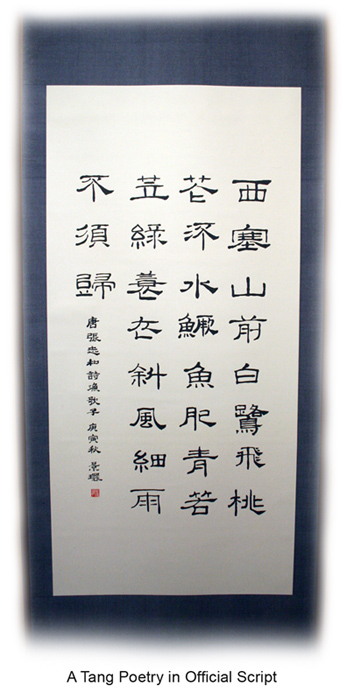 西塞山前白鷺飛桃
花流水鱖魚肥青箬
笠綠蓑衣斜風細雨
不須歸
唐張志和詩漁歌子 庚寅秋 景
A Tang Poetry in Official Script